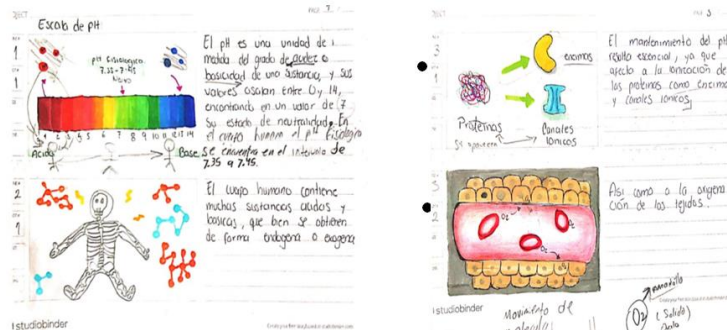 Escala de pH
PAGE 3
1
pH fisiologico
7.35 - 7.45
Neutro
1 2 3 4 5 6 7 8 9 10 11 12 13 14
Acido
Base
El pH es una unidad de
medida del grado de acidez o
basicidad de una sustancia, y sus
valores oscilan entre 0 y 14,
encontrando en un valor de 7
su estado de neutralidad. En
el cuerpo humano el pH fisiologico
se encuentra en el intervalo de
7.35 a 7.45.
2
El cuerpo humano contiene
muchas sustancias acidas y
basicas, que bien se obtienen
de forma endogena o exogena
studiobinder
3
enzimas
Proteinas
Canales
ionicos
El mantenimiento del pH
resulta esencial, ya que
afecta a la ionización de
las proteinas como enzimas
y canales ionicos,
O₂
O₂
O₂
Asi como a la oxigena
ción de los tejidos.
studiobinder
Movimiento de
amarillo
O₂
(Solido)